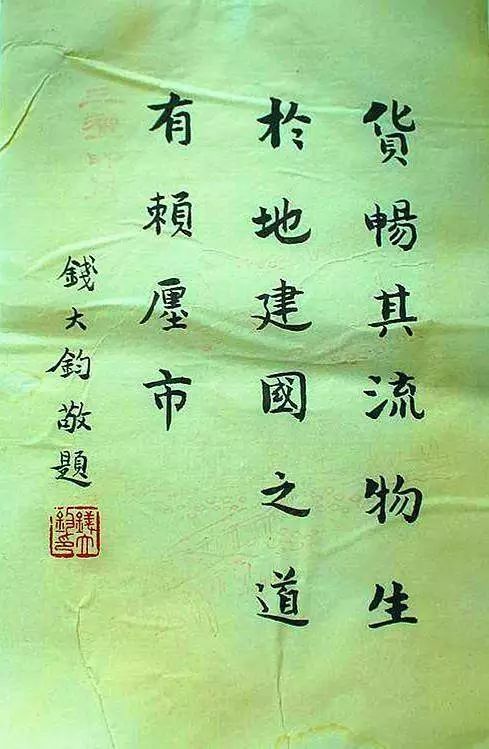 貨暢其流物生
於地建國之道
有賴廛市
錢大鈞敬題
錢大鈞印